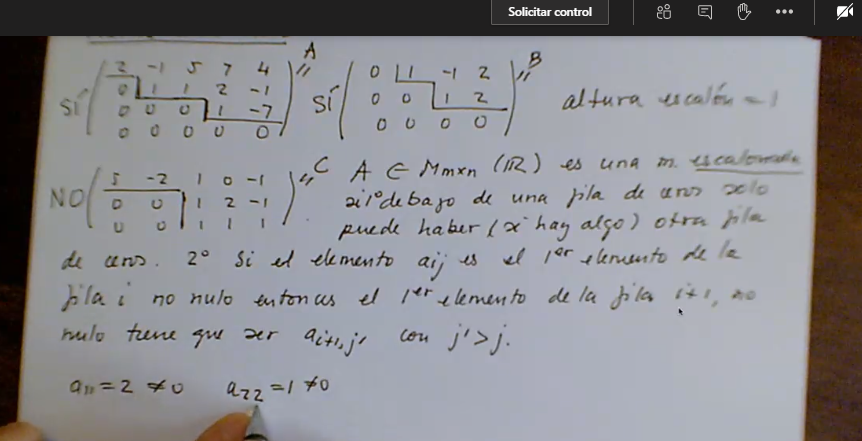 Solicitar control
A
B
SÍ ( 2 -1 5 7 4 ) SÍ ( 0 1 -1 2 )
0 1 1 2 -1 0 0 1 2 altura escalón = 1
0 0 0 1 -7 0 0 0 0
0 0 0 0 0
NO ( 5 -2 1 0 -1 ) C A ∈ Mmxn (IR) es una m. escalonada
0 0 1 2 -1 si 1º debajo de una fila de ceros solo
0 0 1 1 1 puede haber (si hay algo) otra fila
de ceros. 2º Si el elemento aij es el 1er elemento de la
fila i no nulo entonces el 1er elemento de la fila i+1, no
nulo tiene que ser ai+1,j' con j' > j.
a11 = 2 ≠ 0 a22 = 1 ≠ 0